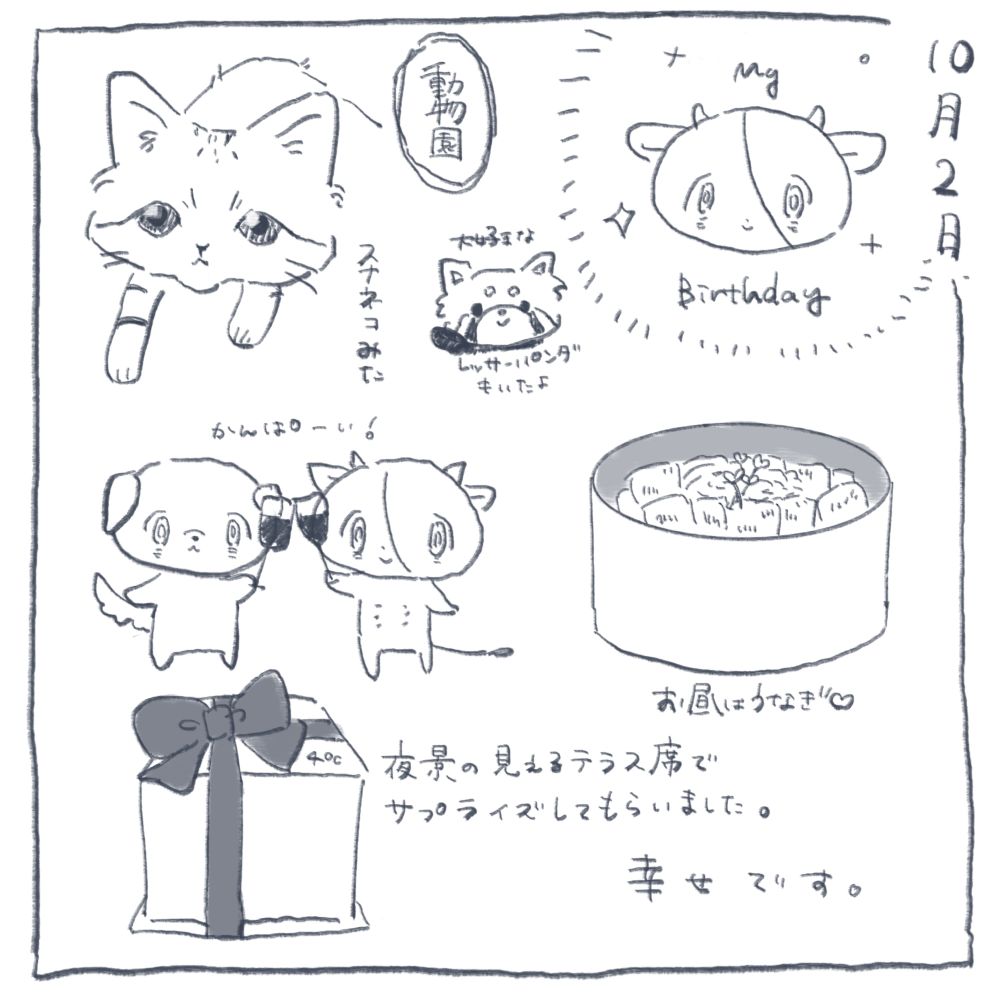 10月2日
My
Birthday
動物園
スナネコみた
大好きな
レッサーパンダ
もいたよ
かんぱーい!
お昼はうなぎ♡
4℃
夜景の見えるテラス席で
サプライズしてもらいました。
幸せです。